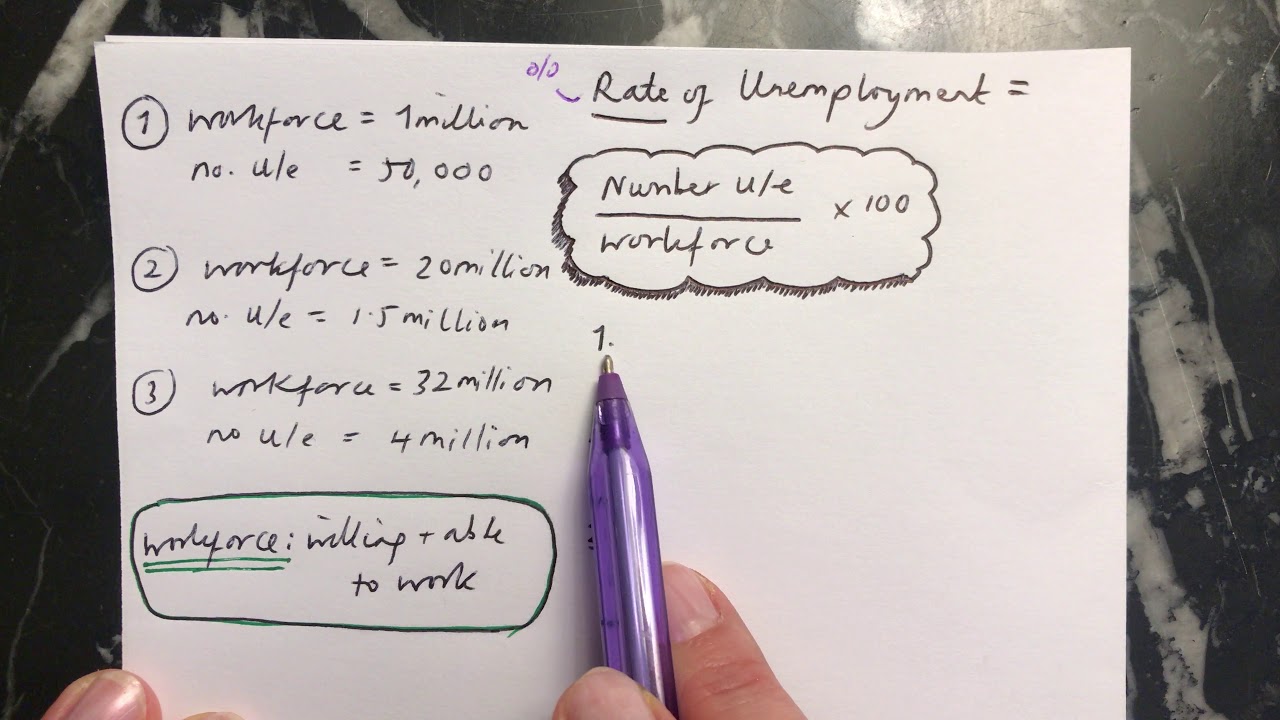 ① workforce = 1million
no. u/e = 50,000
② workforce = 20million
no. u/e = 1.5million
③ workforce = 32million
no u/e = 4million
workforce: willing + able
to work
%
Rate of Unemployment =
Number u/e
workforce
× 100
1.